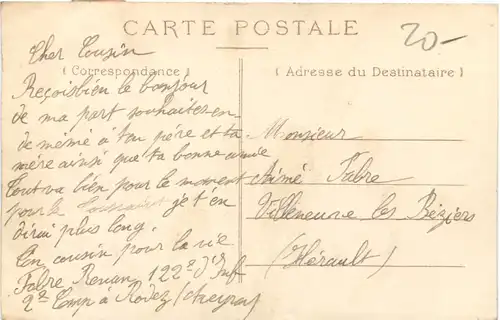 CARTE POSTALE
20-
(Correspondance)
(Adresse du Destinataire)
Cher Cousin
Reçois bien le bonjour
de ma part souhaites-en
de même à ton père et ta
mère ainsi que ta bonne amie
Tout va bien pour le moment
pour la je t'en
dirai plus long.
Ton cousin pour la vie
Fabre 122e d'Inf
2e Comp à Rodez (Aveyron)
Monsieur
Aimé Fabre
Villeneuve les Béziers
(Hérault)